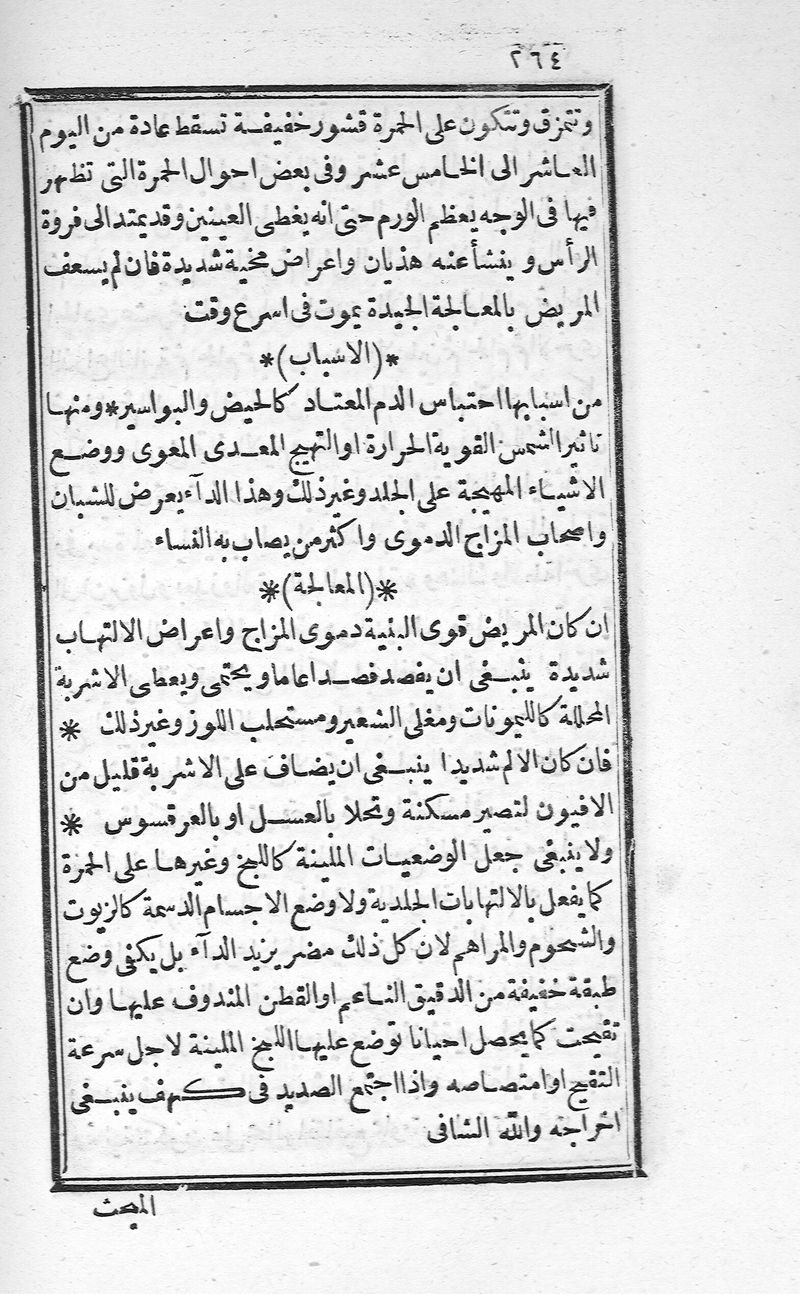 ٢٦٤
وتتمزق وتتكون على الحمرة قشور خفيفة تسقط عادة من اليوم
العاشر الى الخامس عشر وفى بعض احوال الحمرة التى تظهر
فيها فى الوجه يعظم الورم حتى انه يغطى العينين وقد يمتد الى فروة
الرأس وينشأ عنه هذيان واعراض مخية شديدة فان لم يسعف
المريض بالمعالجة الجيدة يموت فى اسرع وقت
*(الاسباب)*
من اسبابها احتباس الدم المعتاد كالحيض والبواسير*ومنها
تاثير الشمس القوية الحرارة او التهيج المعدى المعوى ووضع
الاشياء المهيجة على الجلد وغير ذلك وهذا الدآء يعرض للشبان
واصحاب المزاج الدموى واكثر من يصاب به النساء
*(المعالجة)*
ان كان المريض قوى البنية دموى المزاج واعراض الالتهاب
شديدة ينبغى ان يفصد فصدا عاما ويحتمى ويعطى الاشربة
المحللة كالليمونات ومغلى الشعير ومستحلب اللوز وغير ذلك *
فان كان الالم شديدا ينبغى ان يضاف على الاشربة قليل من
الافيون لتصير مسكنة وتحلا بالعسل او بالعرقسوس *
ولا ينبغى جعل الوضعيات الملينة كاللبخ وغيرها على الحمرة
كما يفعل بالالتهابات الجلدية ولا وضع الاجسام الدسمة كالزيوت
والشحوم والمراهم لان كل ذلك مضر يزيد الدآء بل يكفى وضع
طبقة خفيفة من الدقيق الناعم او القطن المندوف عليها وان
تقيحت كما يحصل احيانا توضع عليها اللبخ الملينة لاجل سرعة
التقيح او امتصاصه واذا اجتمع الصديد فى كهف ينبغى
اخراجه والله الشافى
المبحث